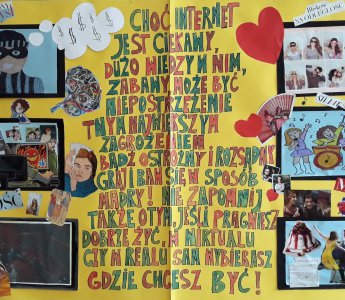 CHOĆ INTERNET
JEST CIEKAWY,
DUŻO WIEDZY W NIM,
ZABAWY, MOŻE BYĆ
NIEPOSTRZEŻENIE
TWYM NAJWIĘKSZYM
ZAGROŻENIEM
BĄDŹ OSTROŻNY I ROZSĄDNY
GRAJ I BAW SIĘ W SPOSÓB
MĄDRY! NIE ZAPOMNIJ
TAKŻE O TYM, JEŚLI PRAGNIESZ
DOBRZE ŻYĆ, W WIRTUALU
CZY W REALU SAM WYBIERASZ
GDZIE CHCESZ BYĆ!